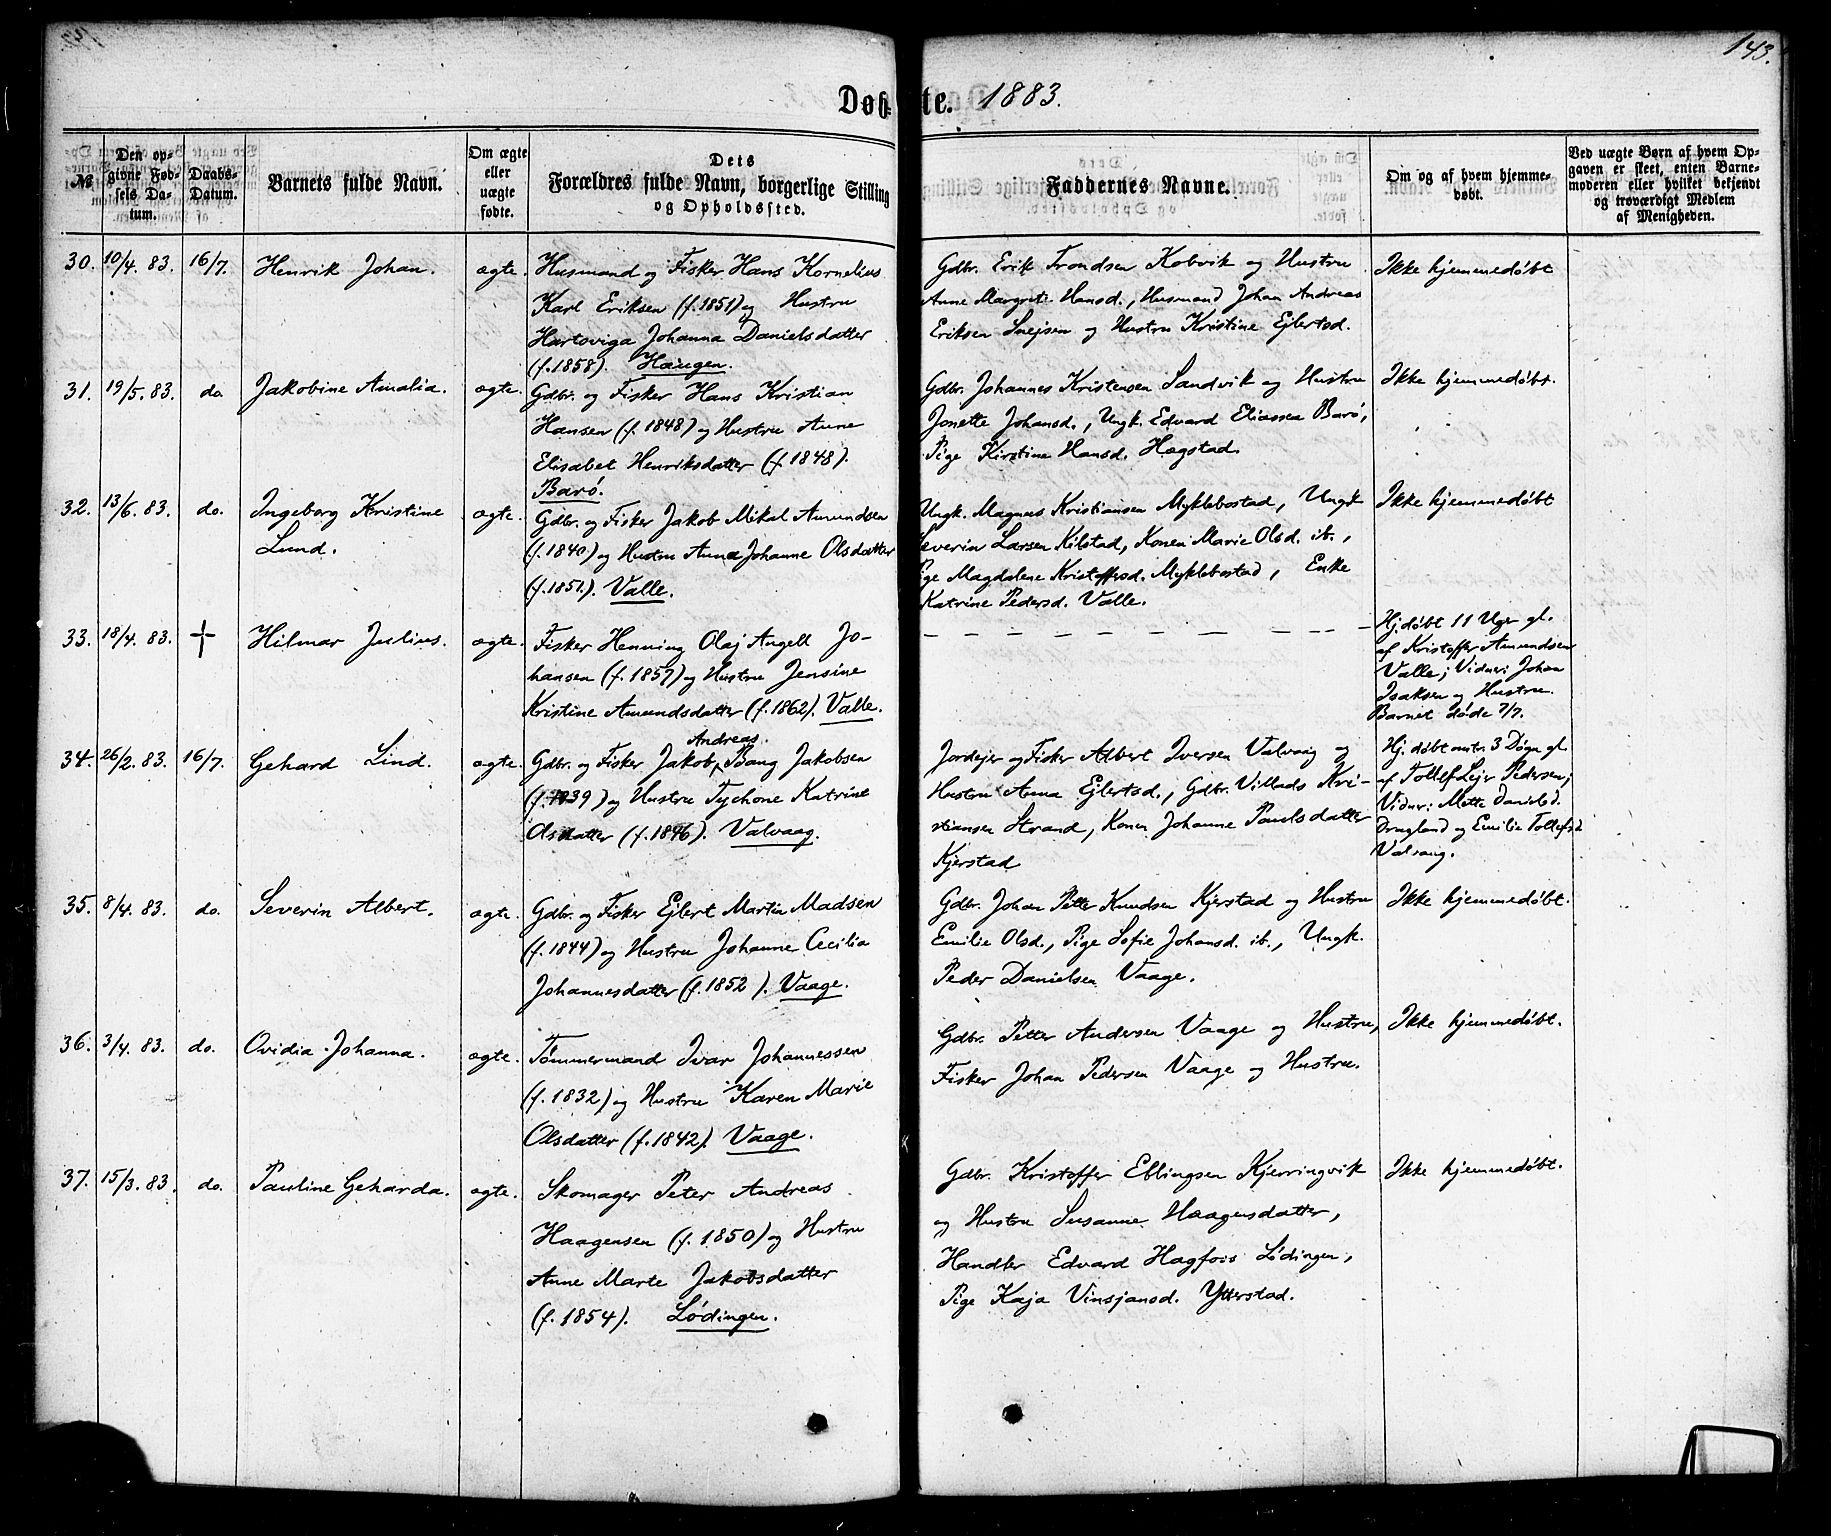 143.
Døbte. 1883.
№
Den opgivne Fødsels Datum.
Daabs-Datum.
Barnets fulde Navn.
Om ægte eller uægte fødte.
Dets Forældres fulde Navn, borgerlige Stilling og Opholdssted.
Faddernes Navne.
Om og af hvem hjemmedøbt.
Ved uægte Børn af hvem Opgaven er skeet, enten Barnemoderen eller hvilket bekjendt og troværdigt Medlem af Menigheden.
30. 10/4. 83. 16/7. Henrik Johan. ægte.
Husmand og Fisker Hans Kornelius
Karl Eriksen (f. 1851) og Hustru
Hartviga Johanna Danielsdatter
(f. 1858). Haugen.
Gdbr. Erik Trondsen Kobvik og Hustru
Anne Margrete Hansd., Husmand Johan Andreas
Eriksen Snejsen og Hustru Kristine Ejlertsd.
Ikke hjemmedøbt
31. 19/5. 83. do. Jakobine Amalia. ægte.
Gdbr. og Fisker Hans Kristian
Hansen (f. 1848) og Hustru Anne
Elisabet Henriksdatter (f. 1848).
Barø.
Gdbr. Johannes Kristensen Sandvik og Hustru
Jonette Johansd., Ungk. Edvard Eliassen Barø,
Pige Kirstine Hansd. Hægstad.
Ikke hjemmedøbt.
32. 13/6. 83. do. Ingeborg Kristine
Lund.
ægte.
Gdbr. og Fisker Jakob Mikal Amundsen
(f. 1840) og Hustru Anna Johanne Olsdatter
(f. 1851.). Valle.
Ungk. Magnus Kristiansen Myklebostad, Ungk
Severin Larsen Kilstad, Konen Marie Olsd. ib.,
Pige Magdalene Kristoffersd. Myklebostad, Enke
Katrine Pedersd. Valle.
Ikke hjemmedøbt
33. 18/4. 83. † Hilmar Julius. ægte.
Fisker Henning Olaj Angell Jo-
hansen (f. 1857) og Hustru Jensine
Kristine Amundsdatter (f. 1862). Valle.
Hj. døbt 11 Uger gl.
af Kristoffer Amundsen
Valle; Vidner: Johan
Isaksen og Hustru.
Barnet døde 7/7.
34. 26/2. 83. 16/7. Gehard Lind. ægte.
Andreas.
Gdbr. og Fisker Jakob Bang Jakobsen
(f. 1839) og Hustru Tychone Katrine
Olsdatter (f. 1846). Valvaag.
Jordejer og Fisker Albert Iversen Valvaag og
Hustru Anna Ejlertsd., Gdbr. Villads Kri-
stiansen Strand, Konen Johanne Paulsdatter
Kjerstad
Hj. døbt omtr. 3 Døgn gl.
af Tollef Lejer Pedersen;
Vidner: Mette Danielsd.
Dragland og Emilie Tollefsd
Valvaag.
35. 8/4. 83. do. Severin Albert. ægte.
Gdbr. og Fisker Ejlert Martin Madsen
(f. 1844) og Hustru Johanne Cecilia
Johannesdatter (f. 1852). Vaage.
Gdbr. Johan Petter Knudsen Kjerstad og Hustru
Emilie Olsd., Pige Sofie Johansd. ib., Ungk.
Peder Danielsen Vaage.
Ikke hjemmedøbt.
36. 3/4. 83. do. Ovidia Johanna. ægte.
Tømmermand Ivar Johannessen
(f. 1832) og Hustru Karen Marie
Olsdatter (f. 1842). Vaage.
Gdbr. Petter Andersen Vaage og Hustru,
Fisker Johan Pedersen Vaage og Hustru.
Ikke hjemmedøbt.
37. 15/3. 83. do. Pauline Geharda. ægte.
Skomager Peter Andreas
Haagensen (f. 1850) og Hustru
Anne Marte Jakobsdatter
(f. 1854). Lødingen.
Gdbr. Kristoffer Eblingsen Kjerringvik
og Hustru Susanne Haagensdatter,
Handler Edvard Hagfois Lødingen,
Pige Kaja Vinsjansd. Ytterstad.
Ikke hjemmedøbt.